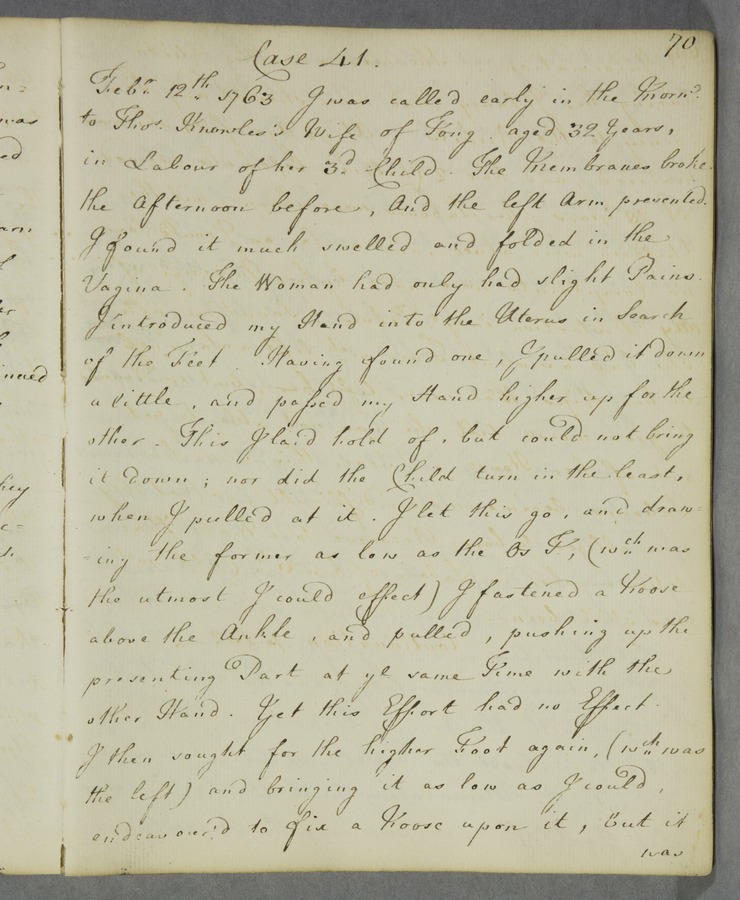 70
Case 41.
Febry. 12th 1763 I was called early in the Morng.
to Thos. Knowles's Wife of Tong. aged 32 Years,
in Labour of her 3d. Child. The Membranes broke
the Afternoon before, And the left Arm presented.
I found it much swelled and folded in the
Vagina. The Woman had only had slight Pains.
I introduced my Hand into the Uterus in Search
of the Feet. Having found one, I pulled it down
a little, and passed my Hand higher up for the
other. This I laid hold of, but could not bring
it down; nor did the Child turn in the least,
when I pulled at it. I let this go, and draw=
=ing the former as low as the Os T, (wch was
the utmost I could effect) I fastened a Noose
above the Ankle, and pulled, pushing up the
presenting Part at ye same Time with the
other Hand. Yet this Effort had no Effect.
I then sought for the higher Foot again, (wch was
the left) and bringing it as low as I could,
endeavour'd to fix a Noose upon it, but it
was